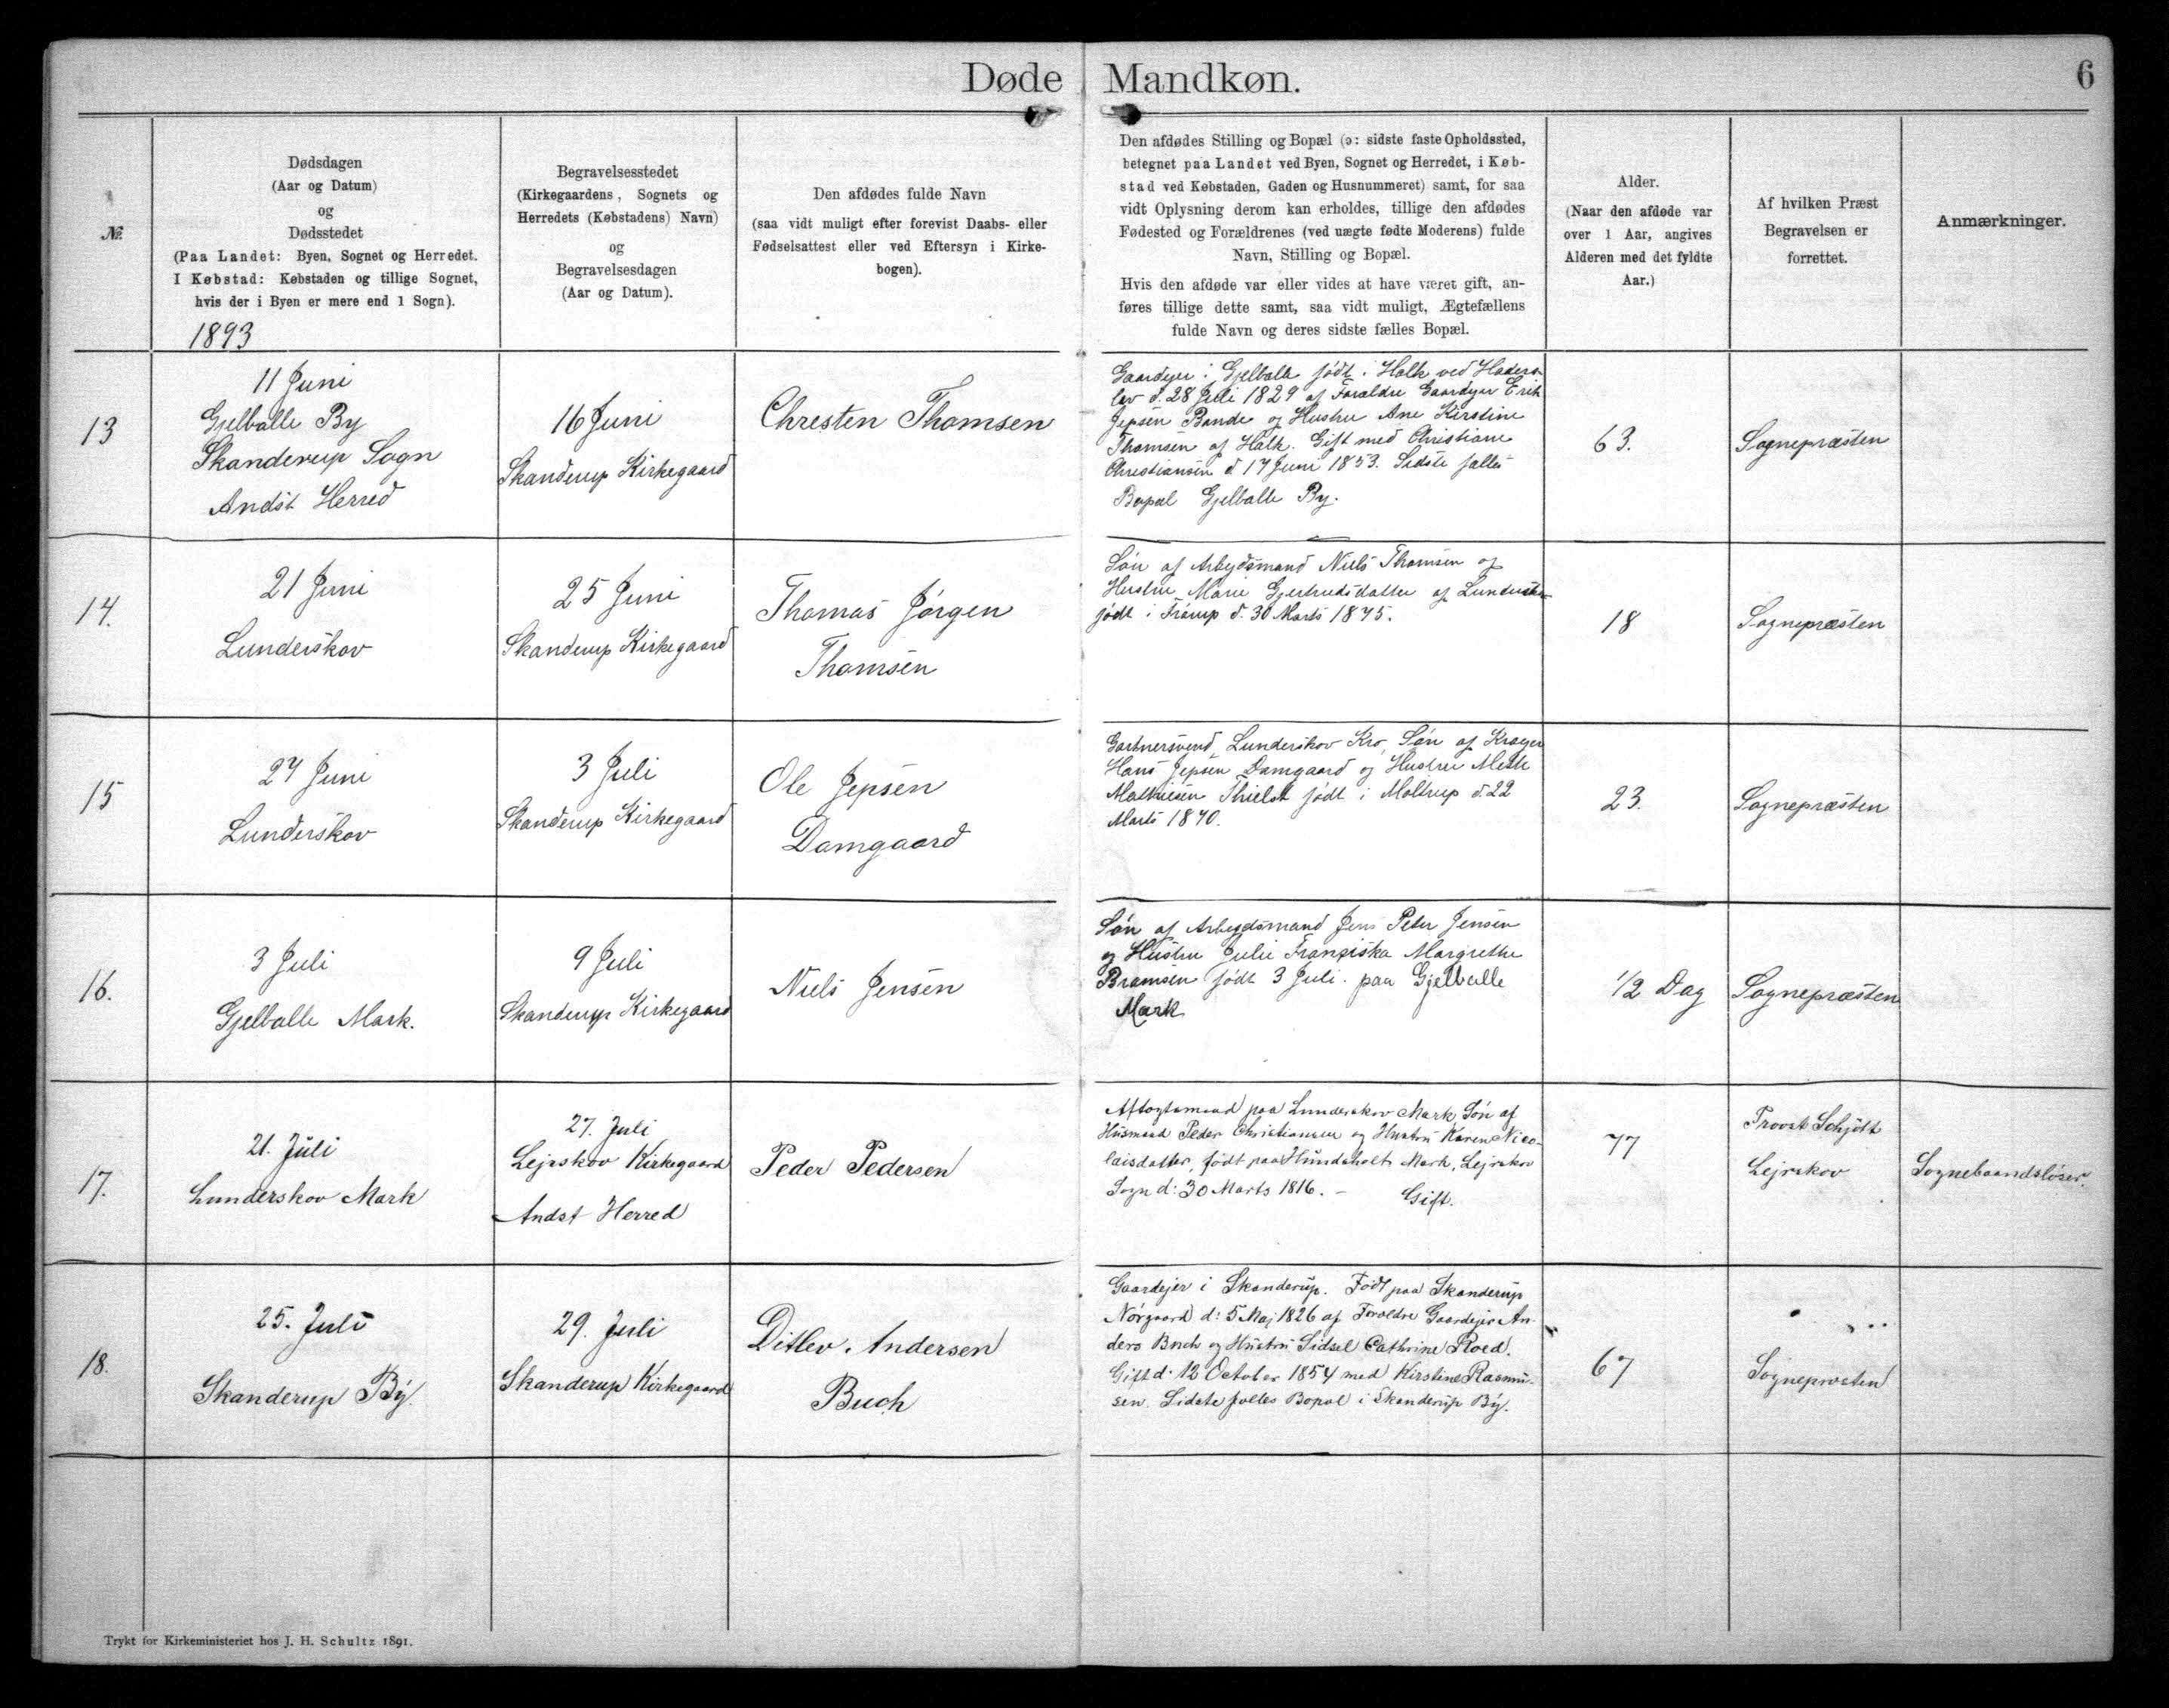 Døde Mandkøn.
6
№.
Dødsdagen
(Aar og Datum)
og
Dødsstedet
(Paa Landet: Byen, Sognet og Herredet.
I Købstad: Købstaden og tillige Sognet,
hvis der i Byen er mere end 1 Sogn).
1893
Begravelsesstedet
(Kirkegaardens, Sognets og
Herredets (Købstadens) Navn)
og
Begravelsesdagen
(Aar og Datum).
Den afdødes fulde Navn
(saa vidt muligt efter forevist Daabs- eller
Fødselsattest eller ved Eftersyn i Kirke-
bogen).
Den afdødes Stilling og Bopæl (ɔ: sidste faste Opholdssted,
betegnet paa Landet ved Byen, Sognet og Herredet, i Køb-
stad ved Købstaden, Gaden og Husnummeret) samt, for saa
vidt Oplysning derom kan erholdes, tillige den afdødes
Fødested og Forældrenes (ved uægte fødte Moderens) fulde
Navn, Stilling og Bopæl.
Hvis den afdøde var eller vides at have været gift, an-
føres tillige dette samt, saa vidt muligt, Ægtefællens
fulde Navn og deres sidste fælles Bopæl.
Alder.
(Naar den afdøde var
over 1 Aar, angives
Alderen med det fyldte
Aar.)
Af hvilken Præst
Begravelsen er
forrettet.
Anmærkninger.
13
11 Juni
Gjelballe By
Skanderup Sogn
Andst Herred
16 Juni
Skanderup Kirkegaard
Chresten Thomsen
Gaardejer i Gjelballe født i Halk ved Haders
lev d. 28 Juli 1829 af Forældre Gaardejer Erik
Jepsen Bonde og Hustru Ane Kirstine
Thomsen af Halk. Gift med Christiane
Christiansen d 17 Juni 1853. Sidste fælles
Bopæl Gjelballe By.
63.
Sognepræsten
14.
21 Juni
Lunderskov
25 Juni
Skanderup Kirkegaard
Thomas Jørgen
Thomsen
Søn af Arbejdsmand Niels Thomsen og
Hustru Marie Gjertrudsdatter af Lunderskov
født i Frørup d. 30 Marts 1875.
18
Sognepræsten
15
27 Juni
Lunderskov
3 Juli
Skanderup Kirkegaard
Ole Jepsen
Damgaard
Gartnersvend, Lunderskov Kro, Søn af Kroejer
Hans Jepsen Damgaard og Hustru Mette
Mathiesen Thielst født i Moltrup d. 22
Marts 1870.
23.
Sognepræsten
16.
3 Juli
Gjelballe Mark.
9 Juli
Skanderup Kirkegaard
Niels Jensen
Søn af Arbejdsmand Jens Peter Jensen
og Hustru Julie Franziska Margrethe
Bramsen født 3 Juli. paa Gjelballe
Mark
1/2 Dag
Sognepræsten
17.
21. Juli
Lunderskov Mark
27. Juli
Lejrskov Kirkegaard
Andst Herred
Peder Pedersen
Aftægtsmand paa Lunderskov Mark, Søn af
Husmand Peder Christiansen og Hustru Karen Nico-
laisdatter, født paa Hundsholt Mark, Lejrskov
Sogn d: 30 Marts 1816. – Gift.
77
Provst Schjøtt
Lejrskov
Sognebaandsløser.
18.
25. Juli
Skanderup By.
29. Juli
Skanderup Kirkegaard
Ditlev Andersen
Buch
Gaardejer i Skanderup. Født paa Skanderup
Nørgaard d: 5 Maj 1826 af Forældre Gaardejer An-
ders Buch og Hustru Sidsel Cathrine Roed.
Gift d. 12 October 1854 med Kirstine Rasmu-
sen. Sidste fælles Bopæl i Skanderup By.
67
Sognepræsten
Trykt for Kirkeministeriet hos J. H. Schultz 1891.